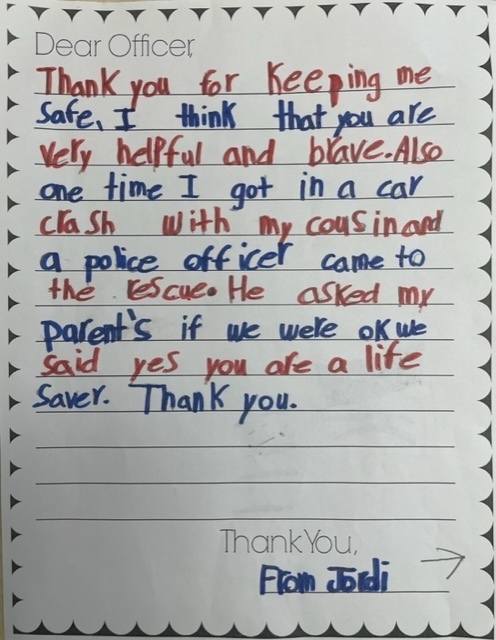 Dear Officer,
Thank you for Keeping me
Safe, I think that you are
very helpful and brave. Also
one time I got in a car
crash with my cousin and
a police officer came to
the rescue. He asked my
parent's if we were ok we
said yes you are a life
Saver. Thank you.
Thank You,
From Jordi